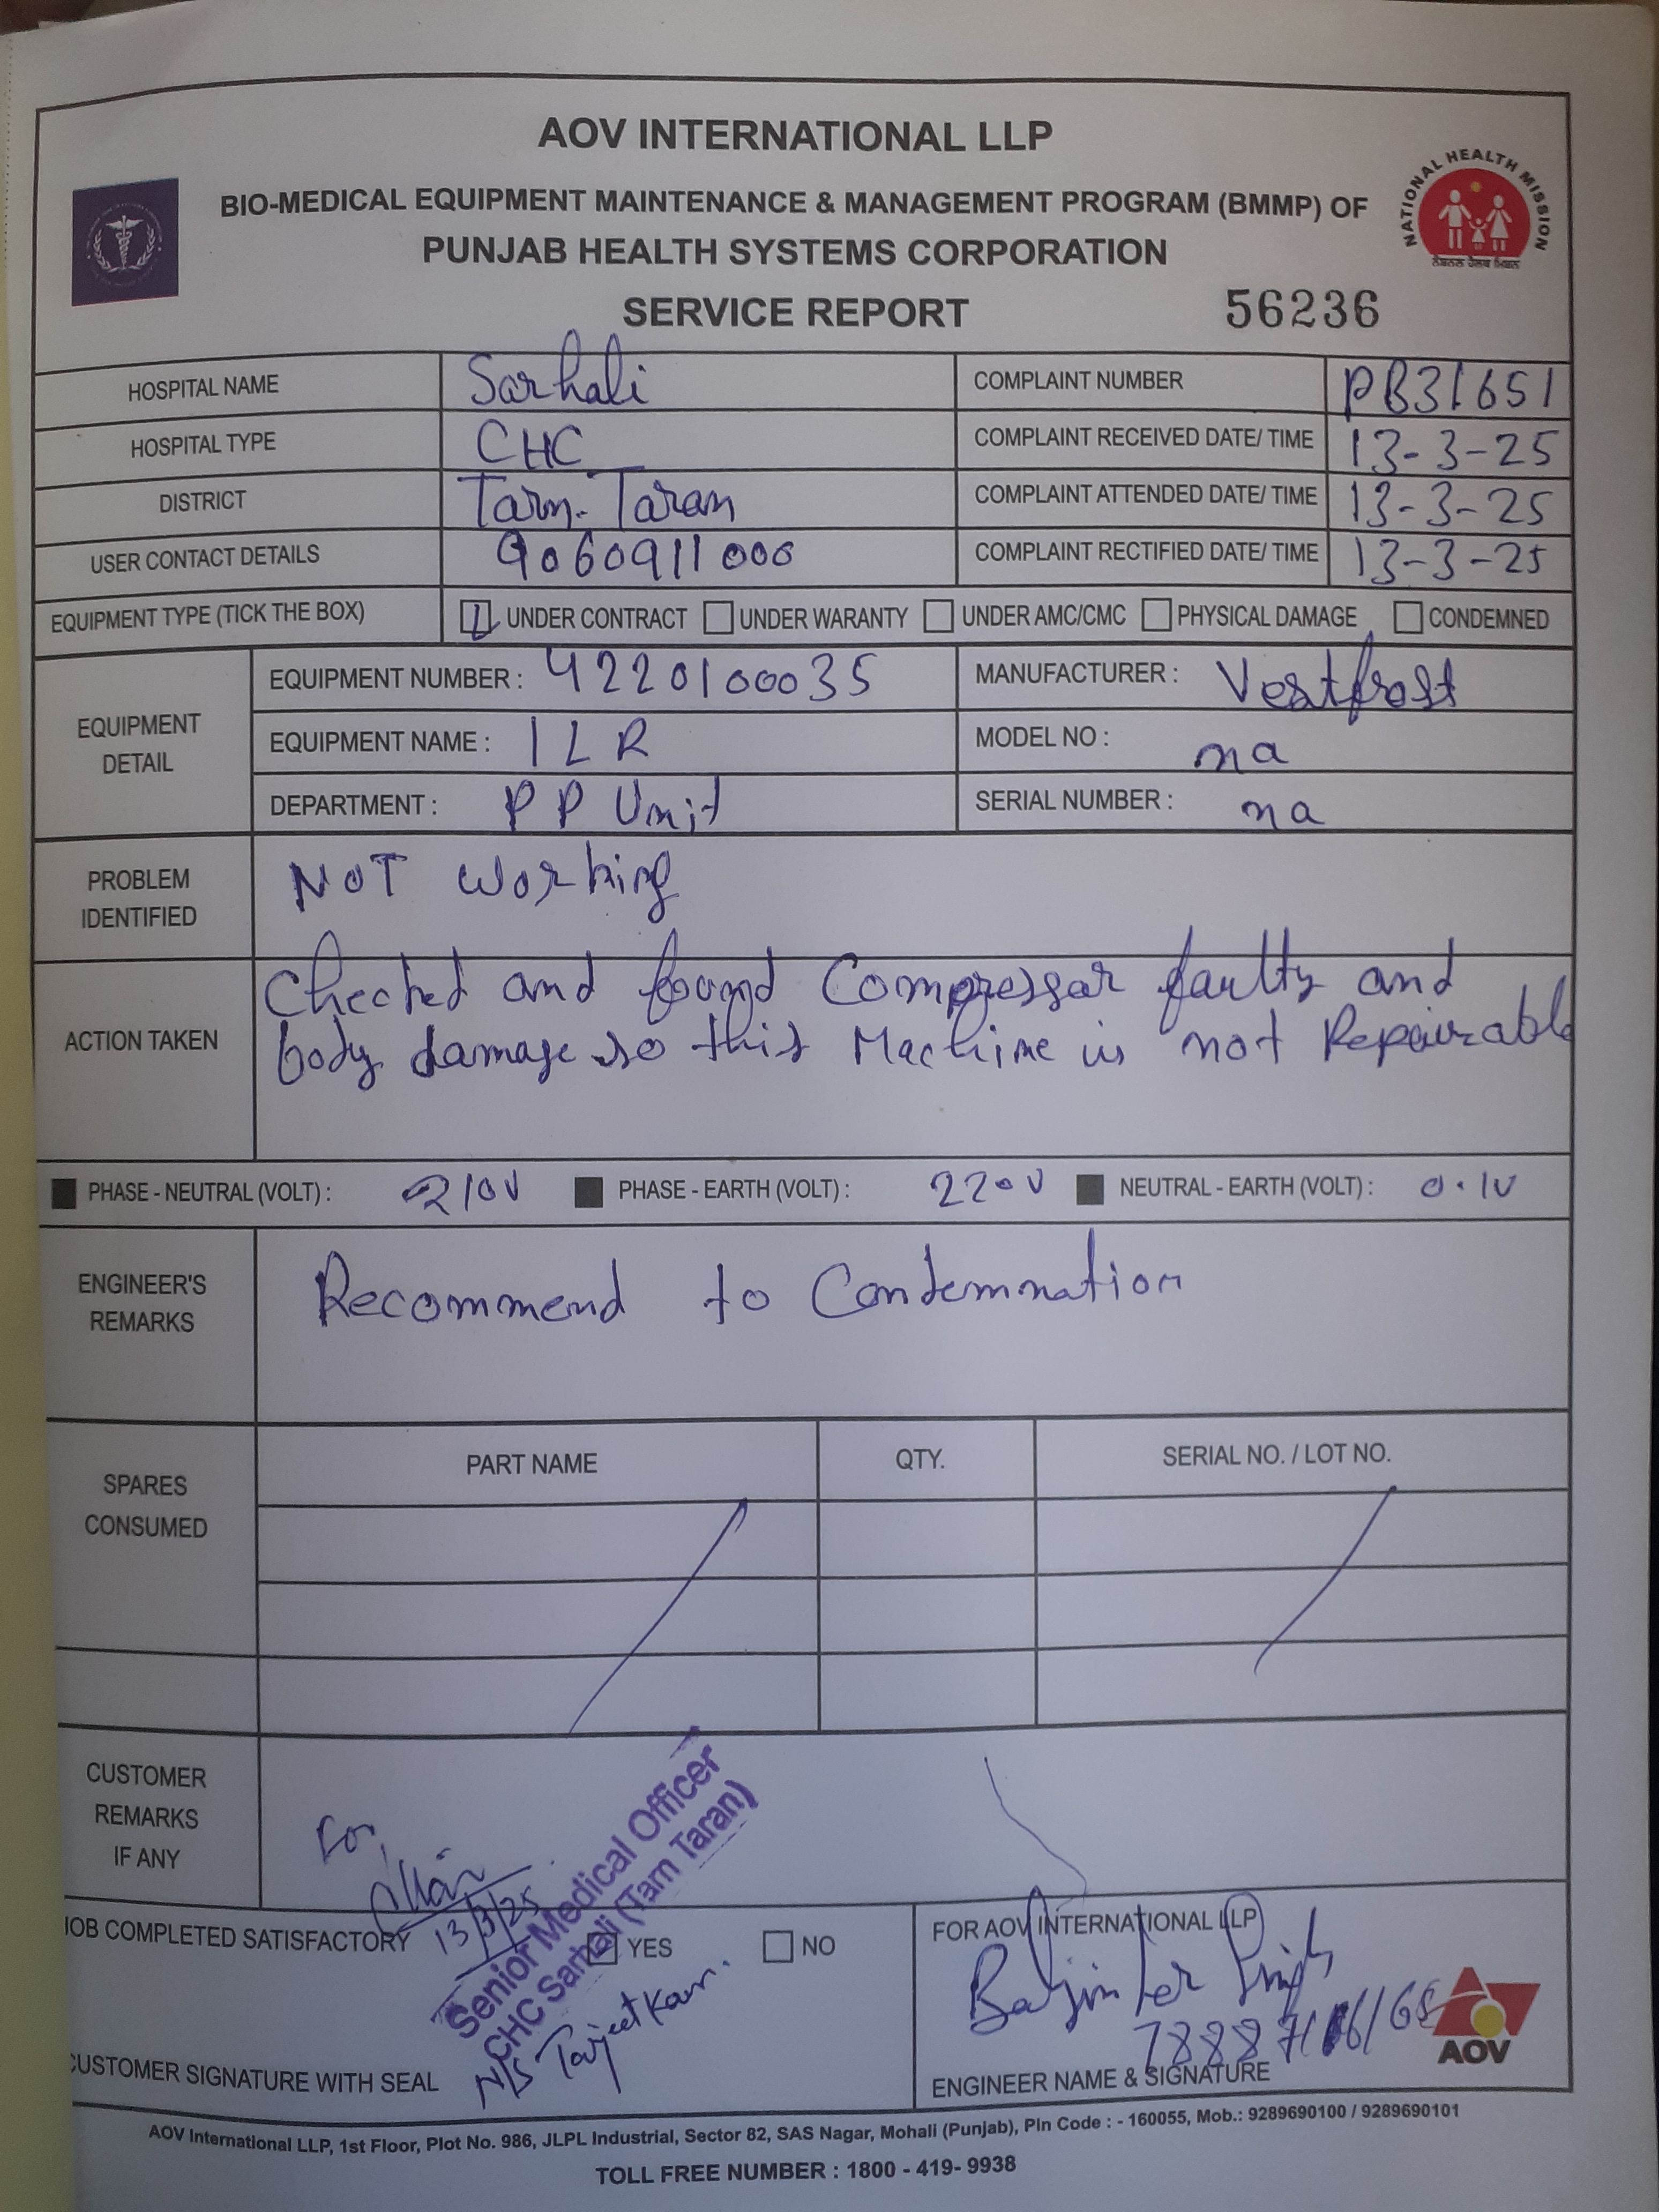 AOV INTERNATIONAL LLP
BIO-MEDICAL EQUIPMENT MAINTENANCE & MANAGEMENT PROGRAM (BMMP) OF
PUNJAB HEALTH SYSTEMS CORPORATION
NATIONAL HEALTH MISSION
ਨੈਸ਼ਨਲ ਹੈਲਥ ਮਿਸ਼ਨ
SERVICE REPORT 56236
HOSPITAL NAME Sarhali COMPLAINT NUMBER PB31651
HOSPITAL TYPE CHC COMPLAINT RECEIVED DATE/ TIME 13-3-25
DISTRICT Tarn-Taran COMPLAINT ATTENDED DATE/ TIME 13-3-25
USER CONTACT DETAILS 9060911000 COMPLAINT RECTIFIED DATE/ TIME 13-3-25
EQUIPMENT TYPE (TICK THE BOX) UNDER CONTRACT UNDER WARANTY UNDER AMC/CMC PHYSICAL DAMAGE CONDEMNED
EQUIPMENT DETAIL
EQUIPMENT NUMBER : 4220100035 MANUFACTURER : Vestfrost
EQUIPMENT NAME : ILR MODEL NO : na
DEPARTMENT : PP Unit SERIAL NUMBER : na
PROBLEM IDENTIFIED NOT working
ACTION TAKEN
Checked and found Compressor faulty and
body damage so this Machine is not Repairable
PHASE - NEUTRAL (VOLT) : 210V PHASE - EARTH (VOLT) : 220V NEUTRAL - EARTH (VOLT) : 0.1V
ENGINEER'S REMARKS Recommend to Condemnation
SPARES CONSUMED
PART NAME QTY. SERIAL NO. / LOT NO.
CUSTOMER REMARKS IF ANY
For
13/3/25
Senior Medical Officer
CHC Sarhali (Tarn Taran)
JOB COMPLETED SATISFACTORY YES NO
N/S Tarjeet Kaur.
CUSTOMER SIGNATURE WITH SEAL
FOR AOV INTERNATIONAL LLP
Baljinter Singh
AOV
ENGINEER NAME & SIGNATURE
AOV International LLP, 1st Floor, Plot No. 986, JLPL Industrial, Sector 82, SAS Nagar, Mohali (Punjab), Pin Code : - 160055, Mob.: 9289690100 / 9289690101
TOLL FREE NUMBER : 1800 - 419- 9938